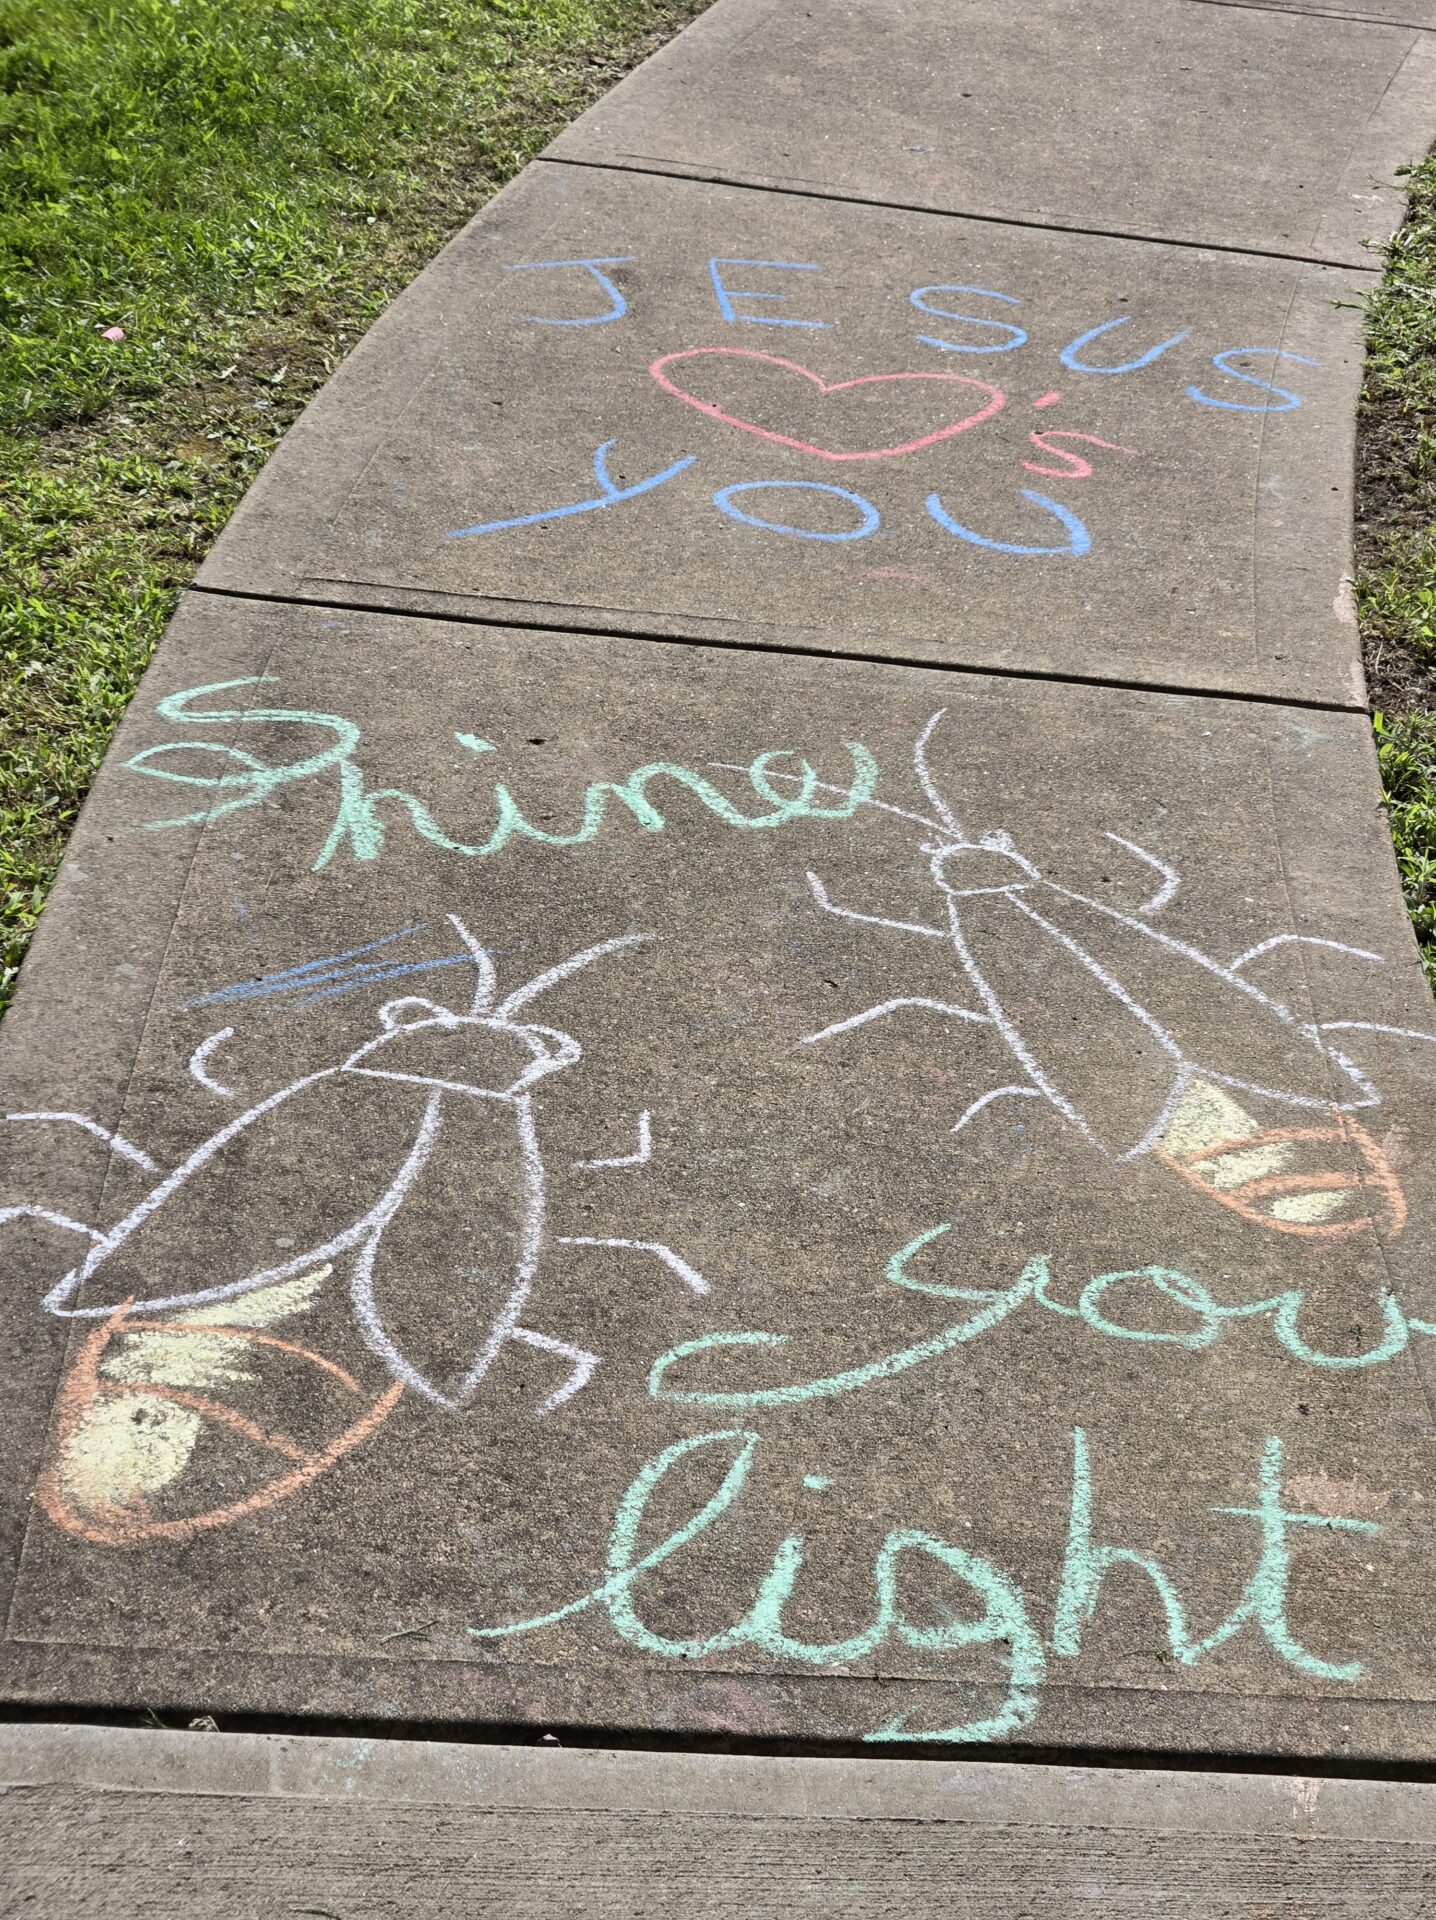 JESUS
♥'s
YOU
Shine
your
light